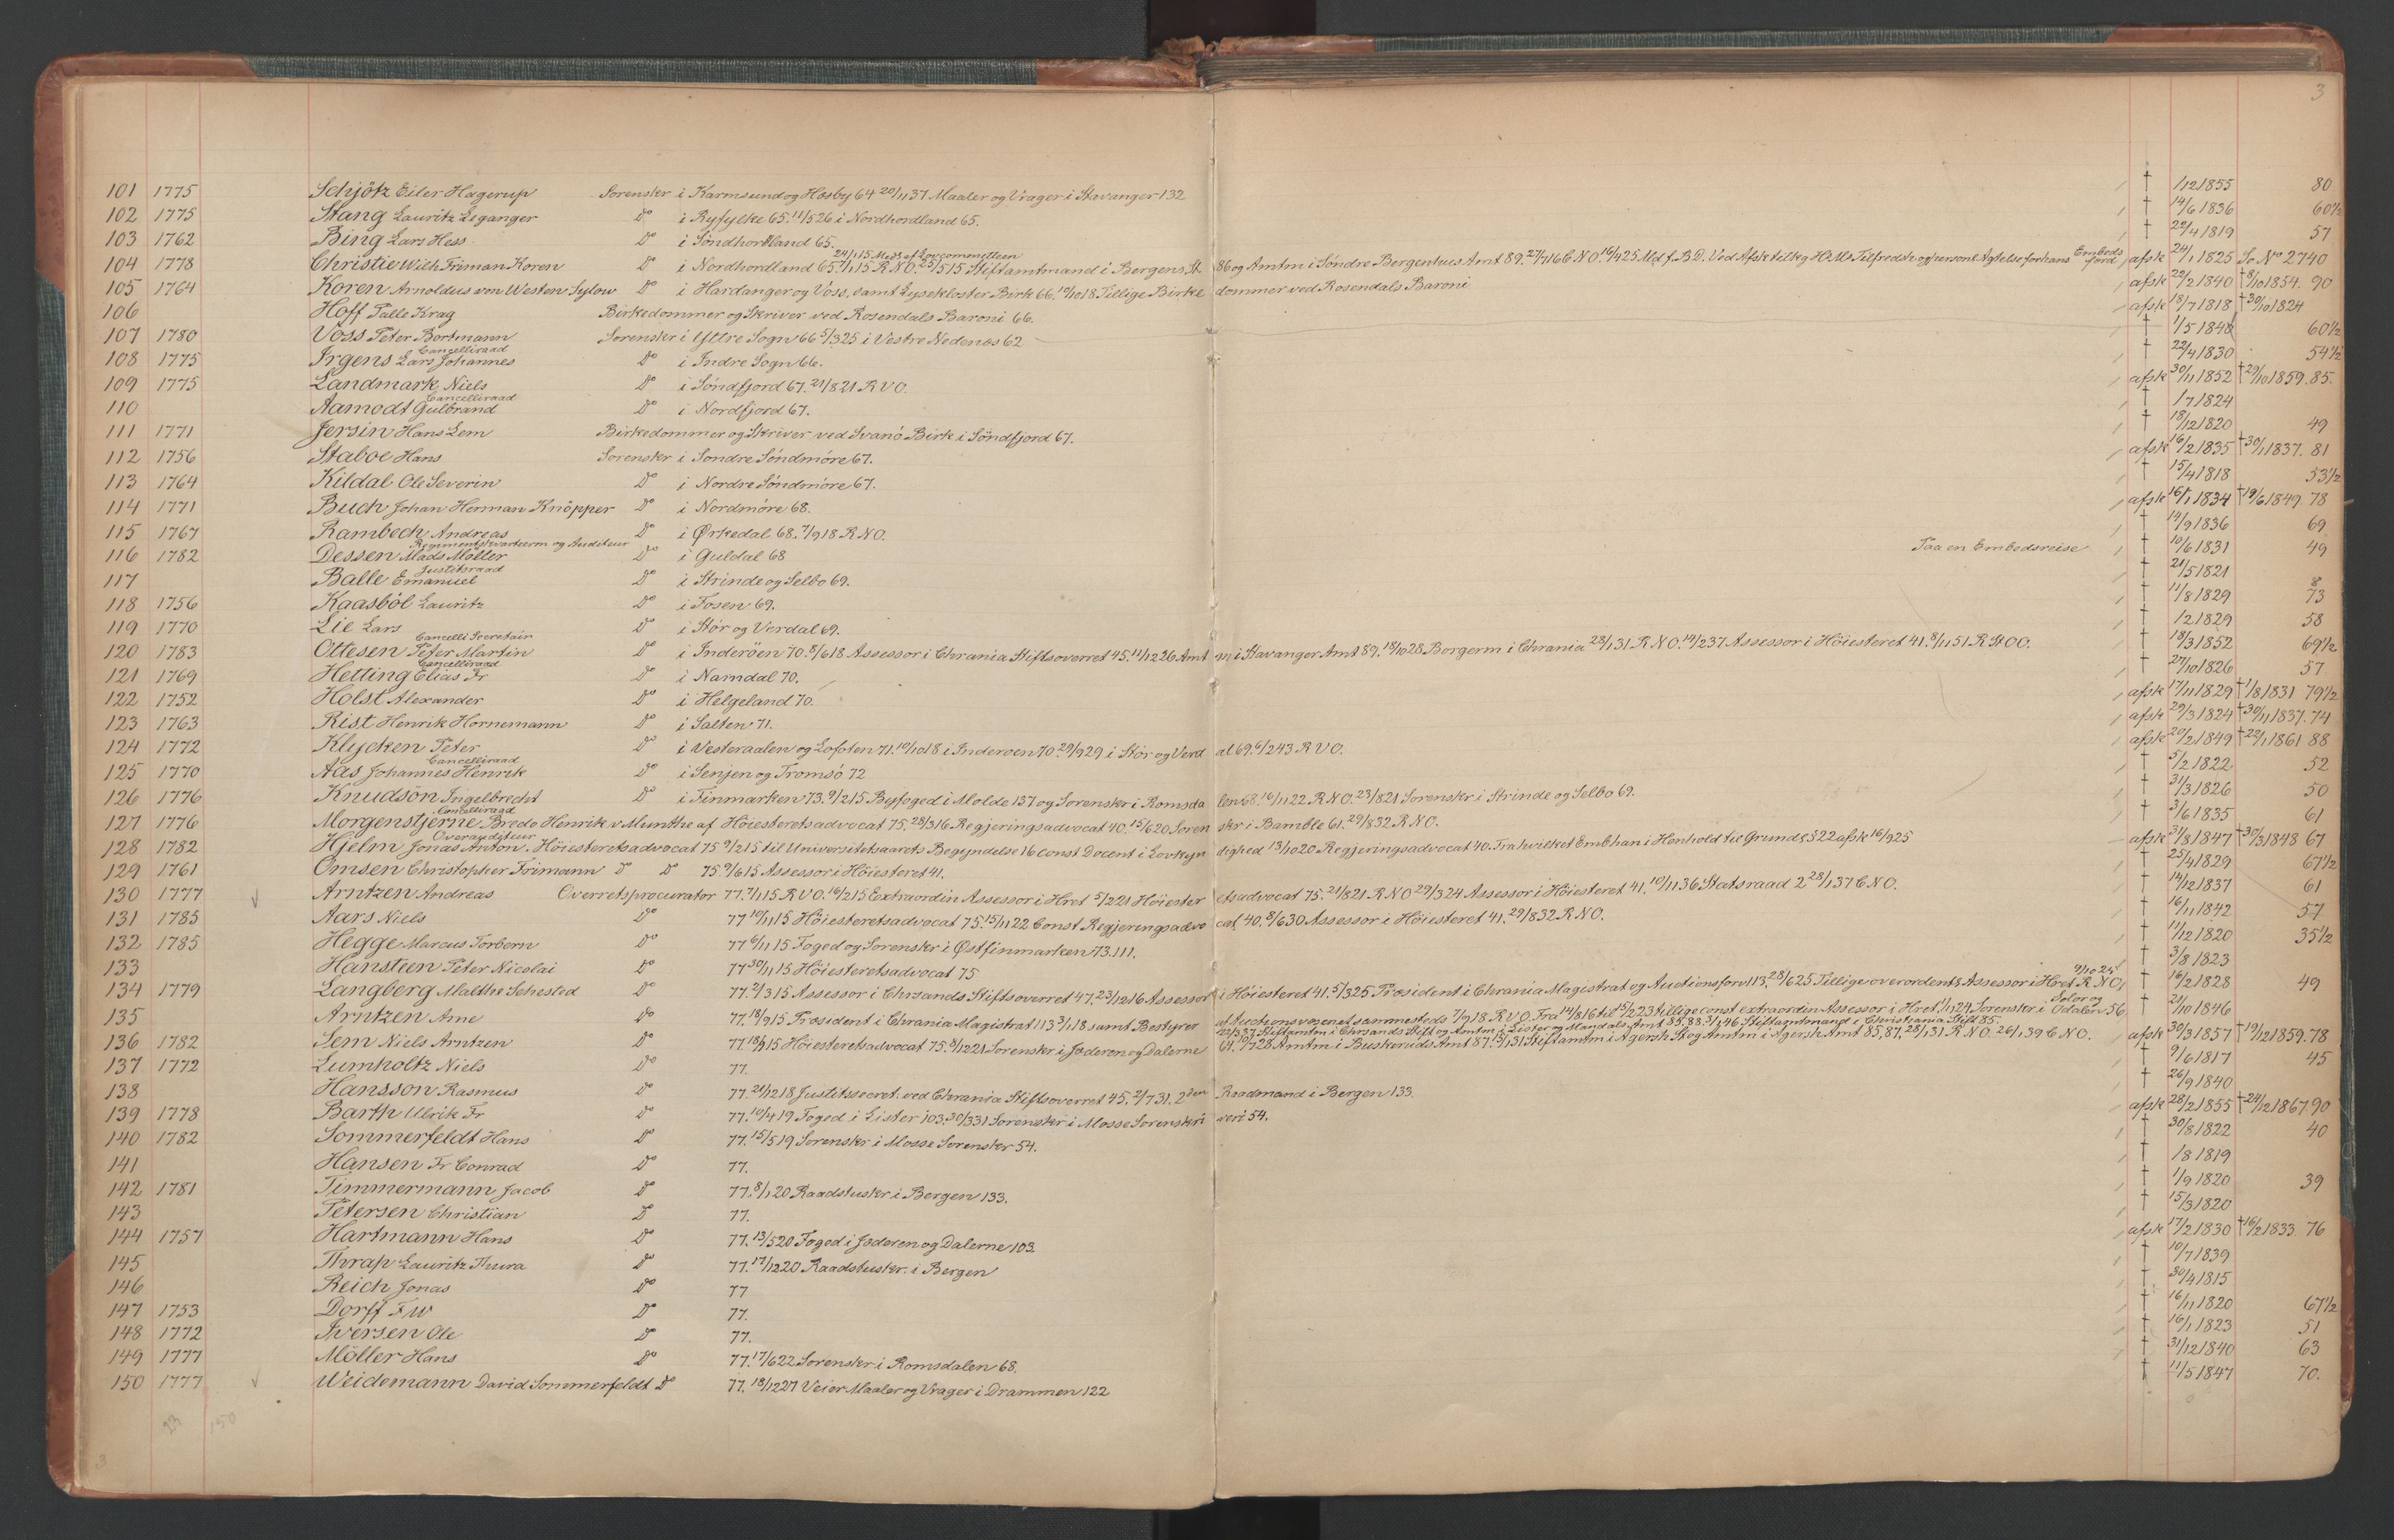 3
101 1775 Schjötz Eiler Hagerup Sorenskr i Karmsund og Hesby 64 20/11 37 Maaler og Vrager i Stavanger 132 † 1/12 1855 80
102 1775 Stang Lauritz Leganger Do i Ryfylke 65. 11/5 26 i Nordhordland 65. † 14/6 1836 60½
103 1762 Bing Lars Hess Do i Söndhordland 65. † 22/4 1819 57
24/1 15 Medl af Lovcommitteen
104 1778 Christie Wilh Friman Koren Do i Nordhordland 65. 7/1 15 R N O. 25/5 15 Stiftamtmand i Bergens St 86 og Amtm i Söndre Bergenhus Amt 89. 27/7 16 C N O. 16/4 25 Md f. B D. Ved Afsk tilkg H Ms Tilfredsh og personl Agtelse for hans Embeds afsk 24/1 1825 Se No 2740
105 1764 Koren Arnoldus von Westen Sylow Do i Hardanger og Voss, samt Lysekloster Birk 66. 19/10 18 Tillige Birkedommer ved Rosendals Baroni afsk 22/2 1840 † 8/10 1854. 90
106 Hoff Palle Krag Birkedommer og Skriver ved Rosendals Baroni 66. afsk 18/7 1818 † 30/10 1824
107 1780 Voss Peter Bortmann Sorenskr i Yttre Sogn 66 5/3 25 i Vestre Nedenæs 62 † 1/5 1848 60½
Cancelliraad
108 1775 Irgens Lars Johannes Do i Indre Sogn 66. † 22/4 1830 54½
109 1775 Landmark Niels Do i Söndfjord 67. 21/8 21 R V O. afsk 30/11 1852 † 29/10 1859. 85.
Cancelliraad
110 Aamodt Gulbrand Do i Nordfjord 67. † /7 1824
111 1771 Jersin Hans Lem Birkedommer og Skriver ved Svanö Birk i Söndfjord 67. † 18/12 1820 49
112 1756 Staboe Hans Sorenskr i Sondre Söndmöre 67. afsk 16/2 1835 † 30/1 1837. 81
113 1764 Kildal Ole Severin Do i Nordre Söndmöre 67. † 15/4 1818 53½
114 1771 Buch Johan Herman Knöpper Do i Nordmöre 68. afsk 16/1 1834 † 19/6 1849. 78
115 1767 Rambech Andreas Do i Ørkedal 68. 7/9 18 R N O. † 14/9 1836 69
Regimentskvarterm og Auditeur
116 1782 Dessen Mads Möller Do i Guldal 68 Paa en Embedsreise † 10/6 1831 49
Justitsraad
117 Balle Emanuel Do i Strinde og Selbo 69. † 21/5 1821
118 1756 Kaasböl Lauritz Do i Fosen 69. † 11/8 1829 73
119 1770 Lie Lars Do i Stör og Verdal 69. † /2 1829 58
Cancelli Secretair
120 1783 Ottesen Peter Martin Do i Inderöen 70. 8/6 18 Assessor i Chrania Stiftsoverret 45. 11/12 26 Amtm i Stavanger Amt 89. 18/10 28 Borgerm i Chrania 28/1 31 R N O. 14/2 37 Assessor i Höiesteret 41. 8/11 51 R St O O. † 18/3 1852 69½
Cancelliraad
121 1769 Hetting Elias Fr Do i Namdal 70. † 27/10 1826 57
122 1752 Holst Alexander Do i Helgeland 70. afsk 17/11 1829 † 1/8 1831 79½
123 1763 Rist Henrik Hornemann Do i Salten 71. afsk 29/3 1824 † 30/11 1837. 74
124 1772 Klycken Peter Do i Vesteraalen og Lofoten 71. 10/10 18 i Inderoen 70 29/9 29 i Stör og Verdal 69. 6/2 43 R V O. afsk 20/2 1849 † 22/1 1861 88
Cancelliraad
125 1770 Aas Johannes Henrik Do i Senjen og Tromsö 72 † 5/2 1822 52
126 1776 Knudsön Ingelbrecht Do i Finmarken 73. 9/2 15 Byfoged i Molde 137 og Sorenskr i Romsdalen 68. 16/11 22 R N O. 23/8 21 Sorenskr i Strinde og Selbo 69. † 31/3 1826 50
Cancelliraad
127 1776 Morgenstjerne Bredo Henrik v Munthe af Höiesteretsadvocat 75. 28/3 16 Regjeringsadvocat 40. 15/6 20 Sorenskr i Bamble 61. 29/8 32 R N O. † 3/6 1835 61
Overauditeur
128 1782 Hjelm Jonas Anton. Höiesteretsadvocat 75 9/2 15 til Universitetsaarets Begyndelse 16 const Docent i Lovkyndighed 13/10 20 Regjeringsadvocat 40. Fra hvilket Emb han i Henhold til Grunds § 22 afsk 16/9 25 afsk 31/8 1847 † 30/3 1848 67
129 1761 Omsen Christopher Frimann Do Do 75. 9/6 15 Assessor i Höiesteret 41. † 25/4 1829 67½
130 1777 Arntzen Andreas Overretsprocurator 77. 7/1 15 R V O. 16/2 15 Extraordin Assessor i Hret 5/2 21 Höiesteretsadvocat 75. 21/8 21 R N O 29/3 24 Assessor i Höiesteret 41. 10/11 36 Statsraad 2 28/1 37 C N O. † 14/12 1837 61
131 1785 Aars Niels Do 77 10/11 15 Höiesteretsadvocat 75. 15/11 22 Const Regjeringsadvocat 40. 8/6 30 Assessor i Höiesteret 41. 29/8 32 R N O. † 16/11 1842 57
132 1785 Hegge Marcus Torbern Do 77 6/11 15 Foged og Sorenskr i Østfinmarken 73. 111. † 11/12 1820 35½
133 Hansteen Peter Nicolai Do 77 30/11 15 Höiesteretsadvocat 75 † 3/8 1823
134 1779 Langberg Malthe Sehested Do 77. 2/3 15 Assessor i Chrsands Stiftsoverret 47. 23/12 16 Assessor i Höiesteret 41. 5/3 25 Præsident i Chrania Magistrat og Auctionsforv 113. 28/6 25 Tillige overordentl Assessor i Hret 9/10 25 R N O, † 16/2 1828 49
135 Arntzen Arne Do 77. 18/9 15 Præsident i Chrania Magistrat 113 3/1 18 samt Bestyrer af Auctionsvæsenet sammesteds 7/9 18 R V O. Fra 14/8 16 til 15/2 23 tillige const extraordin Assessor i Hret 1/12 24 Sorenskr i Solør og Odalen 56 † 21/10 1846
22/3 37 Stiftamtm i Chrsands Stift og Amtm i Lister og Mandals Amt 85, 88. 3/1 46 Stiftamtmand i Christiania Stift 85.
136 1782 Sem Niels Arntzen Do 77. 18/9 15 Höiesteretsadvocat 75. 8/12 21 Sorenskr i Jæderen og Dalerne 64. 10/7 28 Amtm i Buskeruds Amt 87. 13/1 31 Stiftamtm i Agersh St og Amtm i Agersh Amt 85, 87. 28/1 31 R N O. 26/1 39 C N O. afsk 30/3 1857 † 19/12 1859. 78
137 1772 Lumholtz Niels Do 77. † 9/6 1817 45
138 Hansson Rasmus Do 77. 21/12 18 Justitssecret. ved Chrania Stiftsoverret 45. 2/7 31. 2den Raadmand i Bergen 133. † 26/9 1840
139 1778 Barth Ulrik Fr Do 77. 10/4 19 Foged i Lister 103. 30/3 31 Sorenskr i Mosse Sorenskriveri 54. afsk 28/2 1855 † 24/12 1867 90
140 1782 Sommerfeldt Hans Do 77. 15/5 19 Sorenskr i Mosse Sorenskr 54. † 30/8 1822 40
141 Hansen Fr Conrad Do 77. † /8 1819
142 1781 Timmermann Jacob Do 77. 8/1 20 Raadstuskr. i Bergen 133. † 1/9 1820 39
143 Petersen Christian D 77. † 15/3 1820
144 1757 Hartmann Hans Do 77. 13/5 20 Foged i Jæderen og Dalerne 103 afsk 17/2 1830 † 16/2 1833. 76
145 Thrap Lauritz Thura Do 77. 17/12 20 Raadstuskr. i Bergen † 10/7 1839
146 Reich Jonas Do 77 † 30/4 1815
147 1753 Dorff F W Do 77. † 16/11 1820 67½
148 1772 Iversen Ole Do 77. † 16/1 1823 51
149 1777 Möller Hans Do 77. 17/6 22 Sorenskr i Romsdalen 68. † 31/12 1840 63
150 1777 Weidemann David Sommerfeldt Do 77. 18/12 27 Veier Maaler og Vrager i Drammen 122 † 11/5 1847 70.
23 150
3